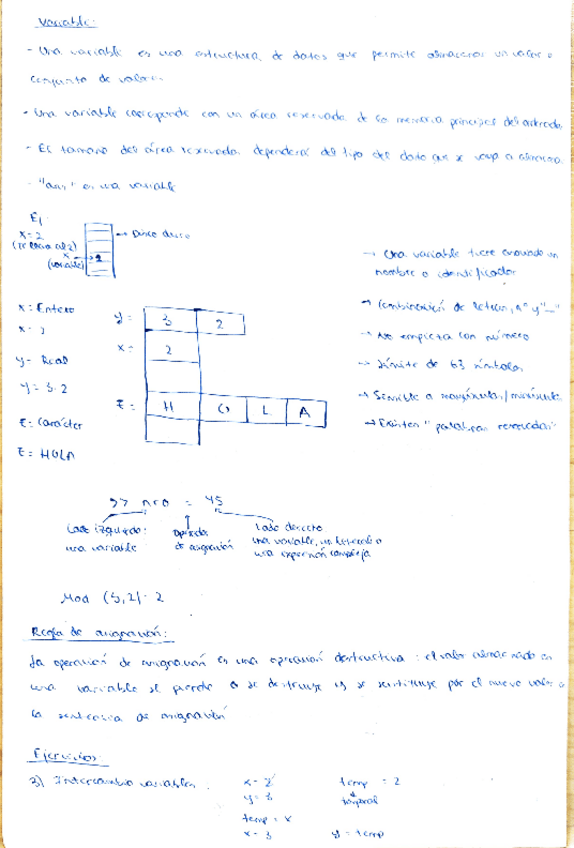 Variable:
- Una variable es una estructura de datos que permite almacenar un valor o
conjunto de valores
- Una variable corresponde con un área reservada de la memoria principal del ordenador
- El tamaño del área reservada dependerá del tipo del dato que se vaya a almacenar
- "ans" es una variable
Ej
x = 2
(variable)
→ Disco duro
→ Una variable tiene asociado un
nombre o identificador
→ Combinación de letras, nº y "_"
→ No empieza con número
→ Límite de 63 símbolos
→ Sensible a mayúsculas/minúsculas
→ Existen "palabras reservadas"
x: Entero
x = 2
y = Real
y = 3.2
z: Carácter
z = HOLA
y = 3 2
x = 2
z = H O L A
>> nro = 45
Lado izquierdo:
una variable
Operador
de asignación
Lado derecho
una variable, un literal o
una expresión compleja
Mod (5,2) = 2
Regla de asignación:
La operación de asignación es una operación destructiva: el valor almacenado en
una variable se pierde o se destruye y se sustituye por el nuevo valor
la sentencia de asignación
Ejercicios:
3) Intercambio variables:
x = 2
y = 3
temp = x
x = 3
temp = 2
temporal
y = temp